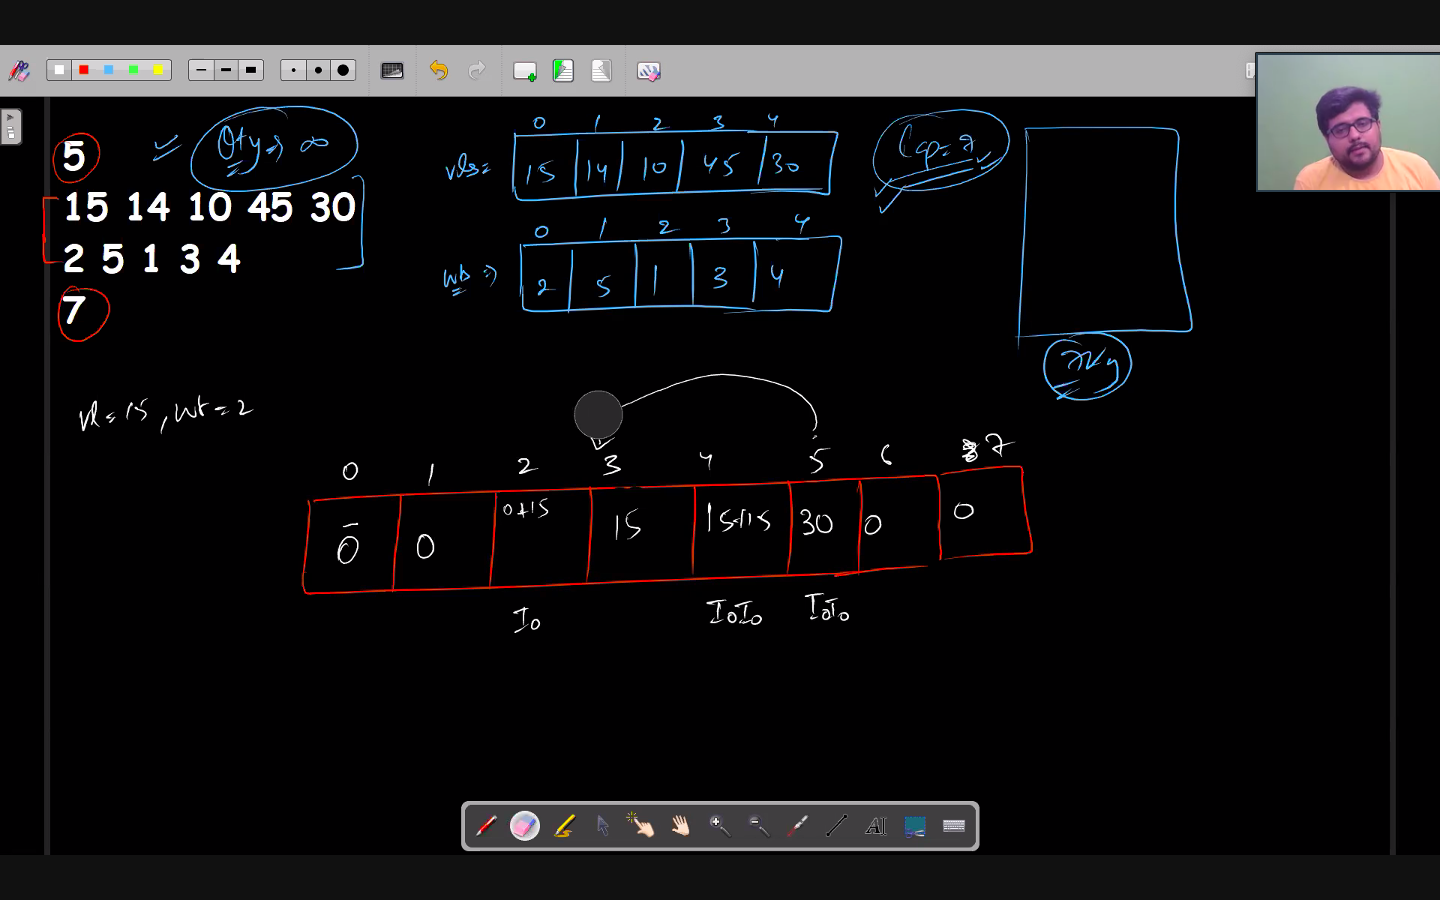 5
Qty => ∞
15 14 10 45 30
2 5 1 3 4
7
0 1 2 3 4
vls = 15 14 10 45 30
Cap = 7
0 1 2 3 4
wts => 2 5 1 3 4
7Kg
vl = 15, wt = 2
0 1 2 3 4 5 6 7
0 0 0+15 15 15+15 30 0 0
I0 I0I0 I0I0
AI